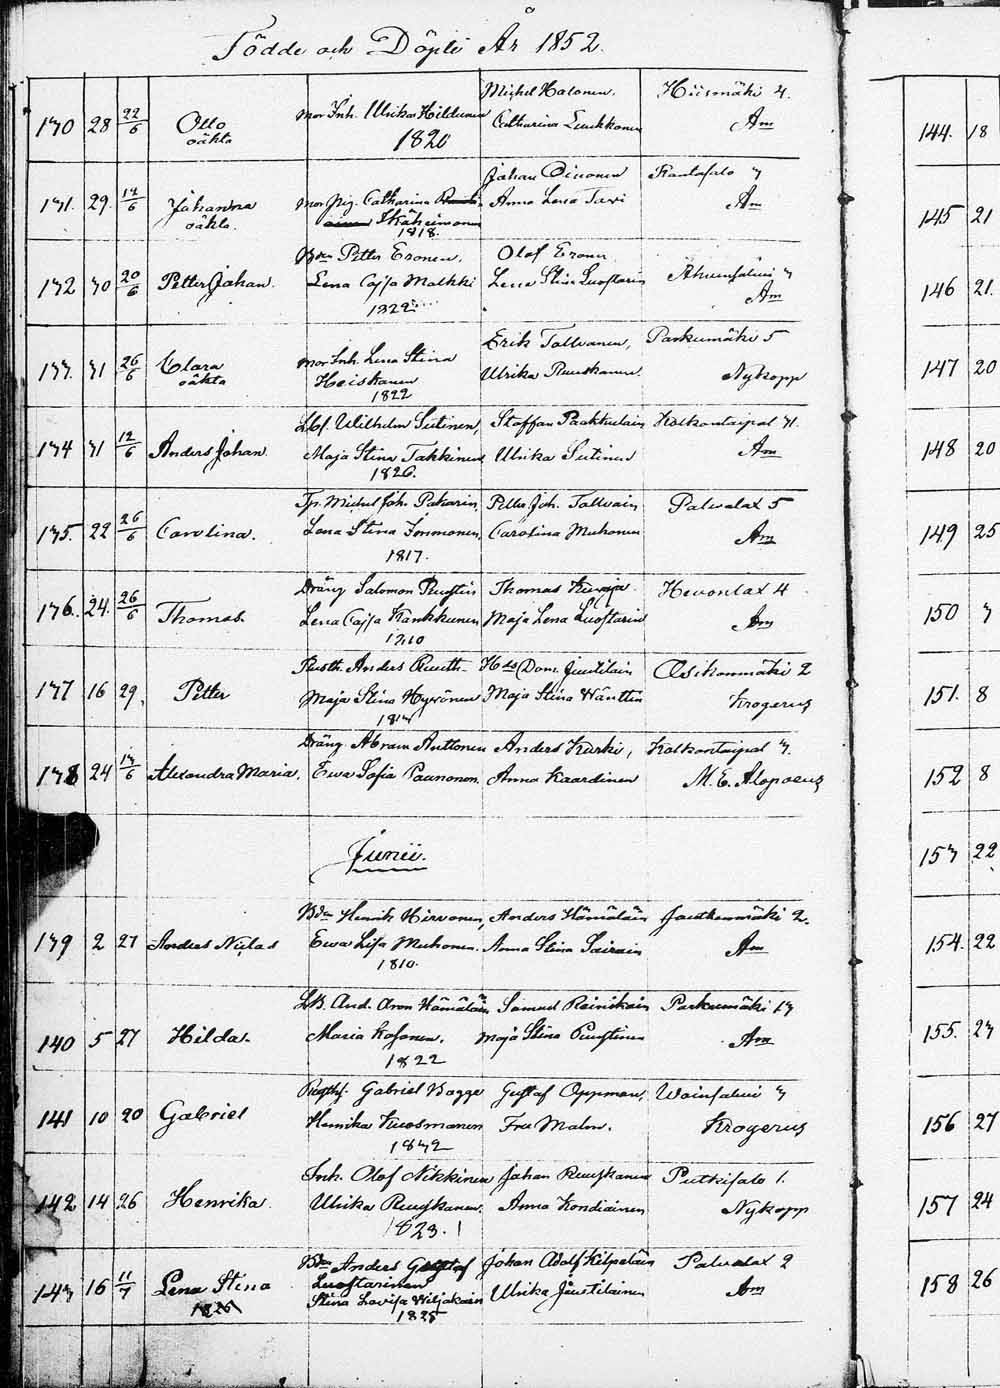 Födde och Döpte År 1852.
130 28 22/6 Otto oäkta Mor Inh. Ulrika Hildunen 1820 Michel Halonen, Catharina Luukkonen Hiismäki 4. Am
131. 29. 14/6 Johanna oäkta. Mor pig. Catharina Ikäheimonen 1818. Johan Anna Lena Tarvi Rantasalo 3 Am
132 30 20/6 Petter Johan. Bdn Petter Eronen, Lena Cajsa Malkki 1822 Olof Eronen Lena Stina Luostarin Ahvensalmi 3 Am
133. 31 26/6 Clara oäkta Mor Inh. Lena Stina Heiskanen 1822 Erik Tolvanen, Ulrika Ruuskanen. Parkumäki 5 Nykopp
134 31 12/6 Anders Johan. Lbf. Wilhelm Sutinen, Maja Stina Takkinen 1826. Staffan Paakkulain Ulrika Sutinen Kolkontaipal 31. Am
135. 22 26/6 Carolina. Tp. Michel Joh. Pakarin, Lena Stina Immonen, 1817. Petter Joh. Tolvain Carolina Muhonen Palvalax 5 Am
136. 24. 26/6 Thomas. Dräng Salomon Ruostin Lena Cajsa Kankkunen 1810 Thomas Maja Lena Luostarin Hevonlax 4 Am
137 16 29, Petter Rusth. Anders Maja Stina Hyvönen Hds Dom. Juutilain Maja Stina Wänttin Osikonmäki 2 Krogerus
138 24 13/6 Alexandra Maria. Dräng. Abram Anttonen Ewa Sofia Paunonen. Anders Kurki, Anna Kaardinen Kolkontaipal 3. M. E. Alopaeus
Junii.
139 2 27 Anders Niclas Bdn Henrik Hirvonen, Ewa Lisa Muhonen. 1810. Anders Hämäläin Anna Stina Sairain Juutkenmäki 2. Am
140 5 27 Hilda. LB. And. Aron Hämäläin Maria Kosonen. 1822 Samuel Reinikain Maja Stina Ruustinen Parkumäki 13 Am
141 10 20 Gabriel Gabriel Bagge Henrika Kuosmanen 1832 Gustaf Oppman, Fru Malm. Wainsalmi 3 Krogerus
142 14 26 Henrika. Inh. Olof Nikkinen Ulrika Ruuskanen. 1823. Johan Ruuskanen Anna Kondiainen Putkisalo 1. Nykopp
143 16 11/7 Lena Stina Bdn Anders Gustaf Luostarinen Stina Lovisa Wiljakain 1825 Johan Adolf Kilpeläin Ulrika Juutilainen Palvalax 2 Am
144. 18
145 21
146 21.
147 20
148 20
149 25
150 3
151. 8
152 8
153 22
154. 22
155. 23
156 27
157 24
158 26